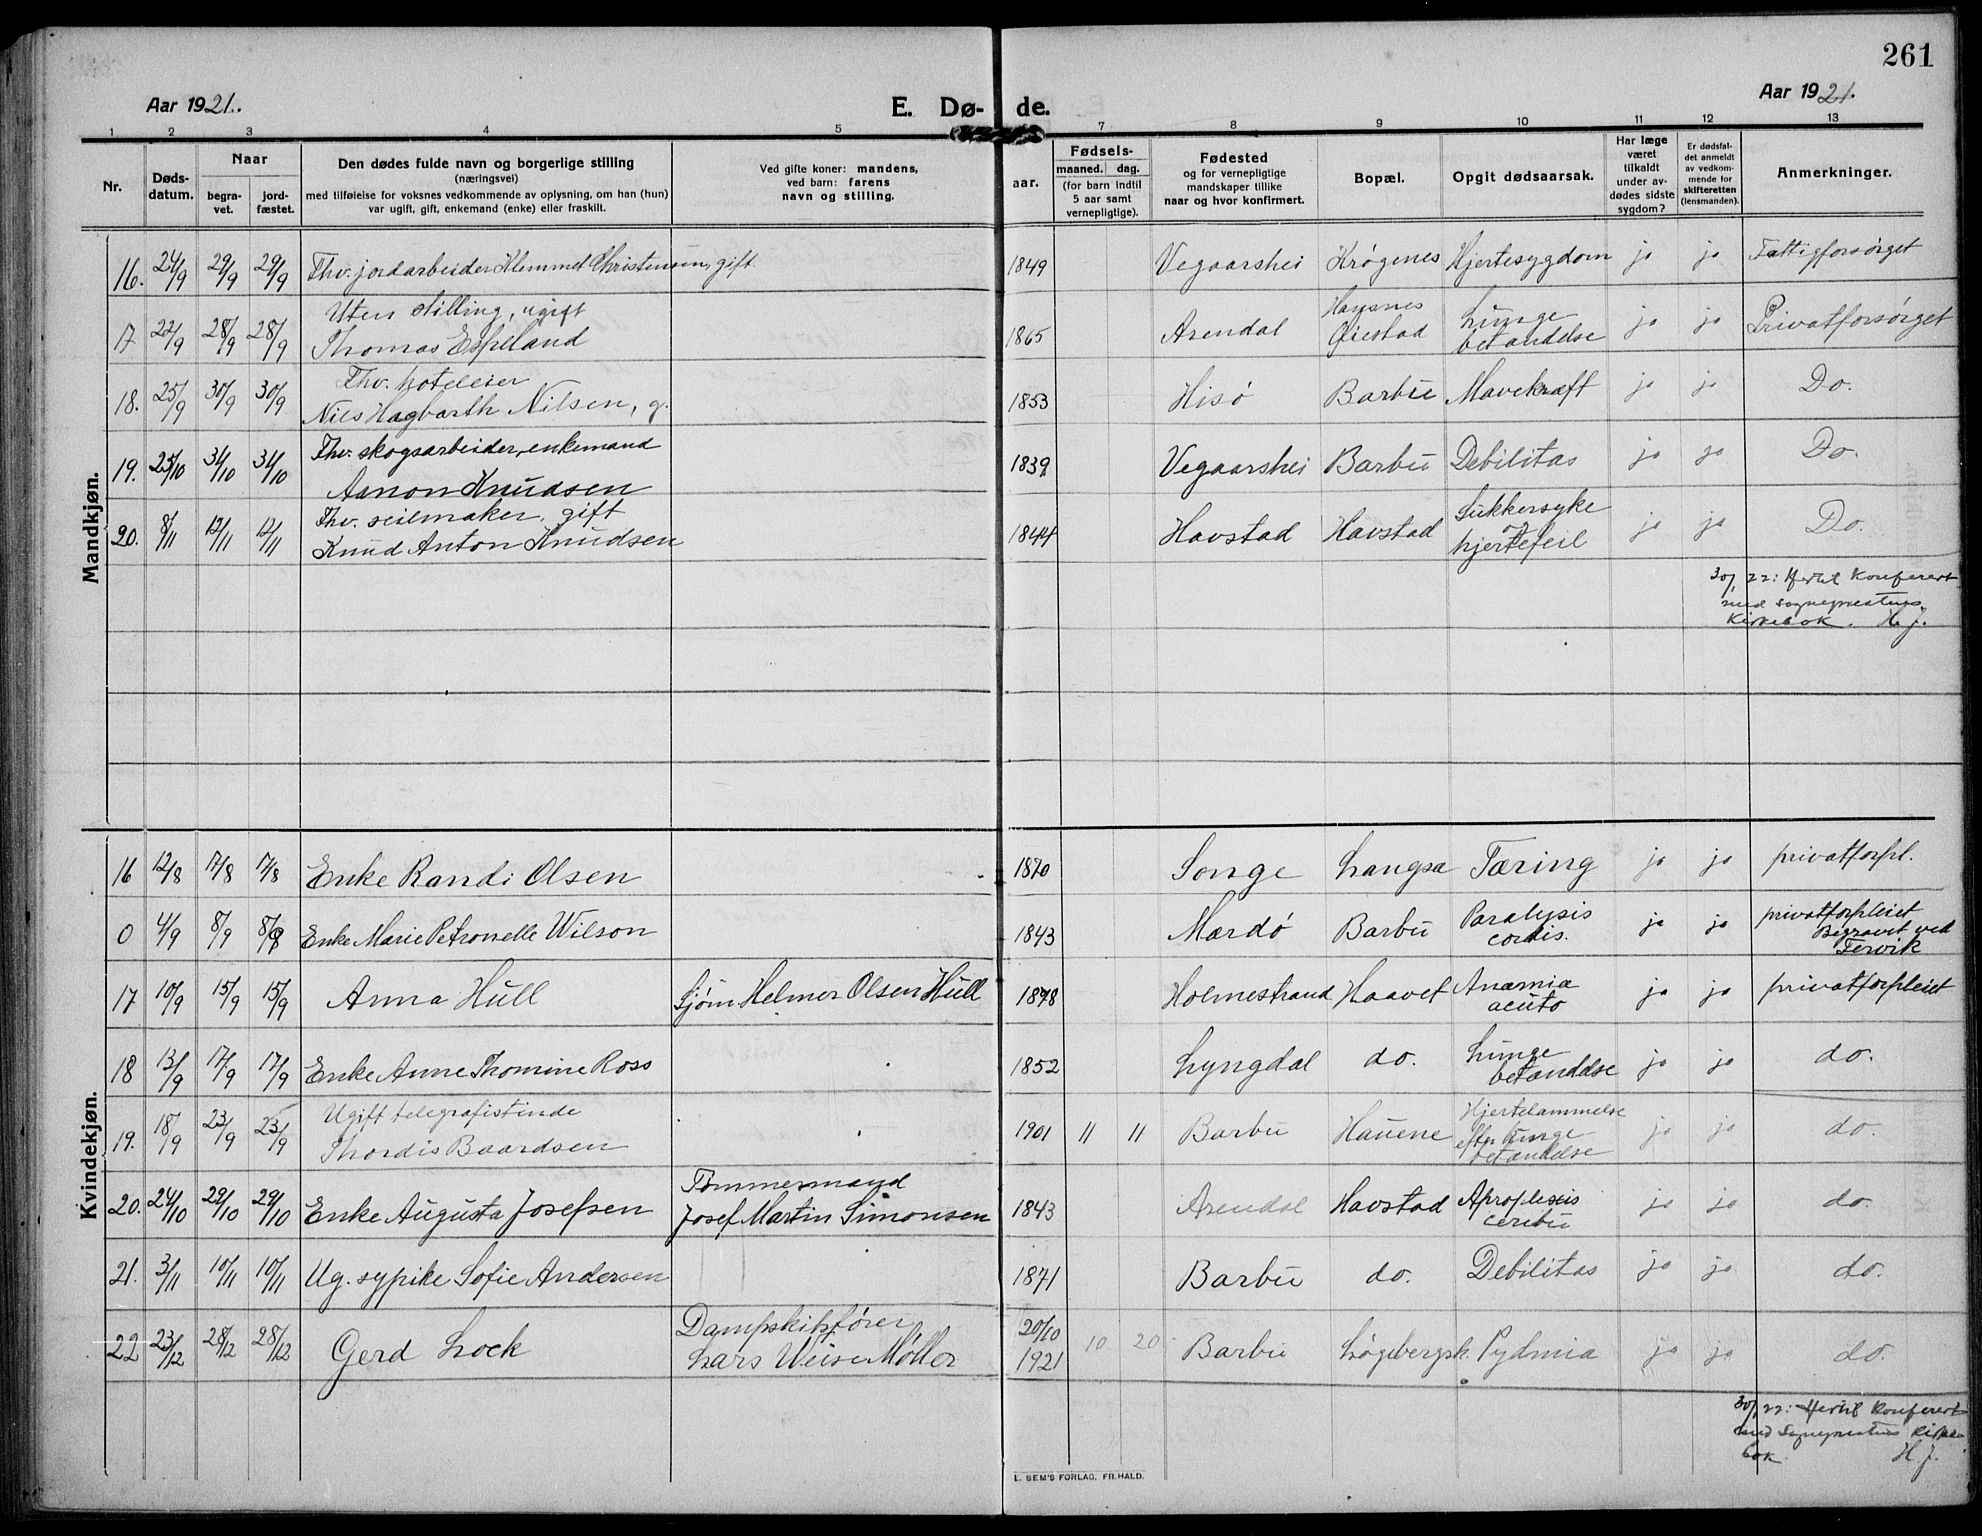 261
Aar 1921.
E. Dø- de.
Aar 1921.
1 2 3 4 5 7 8 9 10 11 12 13
Nr.
Døds-
datum.
Naar
begra-
vet.
jord-
fæstet.
Den dødes fulde navn og borgerlige stilling
(næringsvei)
med tilføielse for voksnes vedkommende av oplysning, om han (hun)
var ugift, gift, enkemand (enke) eller fraskilt.
Ved gifte koner: mandens,
ved barn: farens
navn og stilling.
Fødsels-
aar.
maaned. dag.
(for barn indtil
5 aar samt
vernepligtige).
Fødested
og for vernepligtige
mandskaper tillike
naar og hvor konfirmert.
Bopæl.
Opgit dødsaarsak.
Har læge
været
tilkaldt
under av-
dødes sidste
sygdom?
Er dødsfal-
det anmeldt
av vedkom-
mende for
skifteretten
(lensmanden).
Anmerkninger.
Mandkjøn.
16. 24/9 29/9 29/9 Fhv. jordarbeider Klemmet Christensen, gift 1849 Vegaarshei Krøgenes Hjertesygdom ja ja Fattigforsørget
17 22/9 28/9 28/9 Uten stilling, ugift
Thomas Espeland 1865 Arendal Øiestad Lunge
betændelse ja ja Privatforsørget
18. 25/9 30/9 30/9 Fhv. hoteleier
Nils Hagbarth Nilsen, g. 1853 Hisø Barbu Mavekræft ja ja Do.
19. 25/10 31/10 31/10 Fhv. skogsarbeider, enkemand
Aanon Knudsen 1839 Vegaarshei Barbu Debilitas ja ja Do.
20. 8/11 12/11 12/11 Fhv. seilmaker, gift
Knud Anton Knudsen 1844 Havstad Havstad Sukkersyke
og
hjertefeil ja ja Do.
30/1 22: Hertil konferert
med sogneprestens
Kirkebok. H. J.
Kvindekjøn.
16 12/8 17/8 17/8 Enke Randi Olsen 1870 Songe Langsæ Tæring ja ja privatforpl.
0 4/9 8/9 8/9 Enke Marie Petronelle Wilson 1843 Mærdø Barbu Paralysis
cordis. ja ja privatforpleiet
Begravet ved
Fervik
17 10/9 15/9 15/9 Anna Hull Sjøm. Helmer Olsen Hull 1878 Holmestrand Haavet Anæmia
acuto ja ja privatforpleiet
18 13/9 17/9 17/9 Enke Anne Thomine Ross 1852 Lyngdal do. Lunge
betændelse ja ja do.
19. 18/9 23/9 23/9 Ugift telegrafistinde
Thordis Baardsen 1901 11 11 Barbu Hauene Hjertelammelse
efter lunge
betændelse ja ja do.
20. 24/10 29/10 29/10 Enke Augusta Josefsen Tømmermand
Josef Martin Simonsen 1843 Arendal Havstad Aproplexis
cerebu ja ja do.
21. 3/11 10/11 10/11 Ug. sypike Sofie Andersen 1871 Barbu do. Debilitas ja ja do.
22 23/12 28/12 28/12 Gerd Lock Dampskibsfører
Lars Weise Møller 20/10
1921 10 20 Barbu Løgebergsk. Pydmia ja ja do.
30/1 22: Hertil konferert
med Sogneprestens Kirke
bok. H. J.
E. SEM'S FORLAG, FR.HALD.